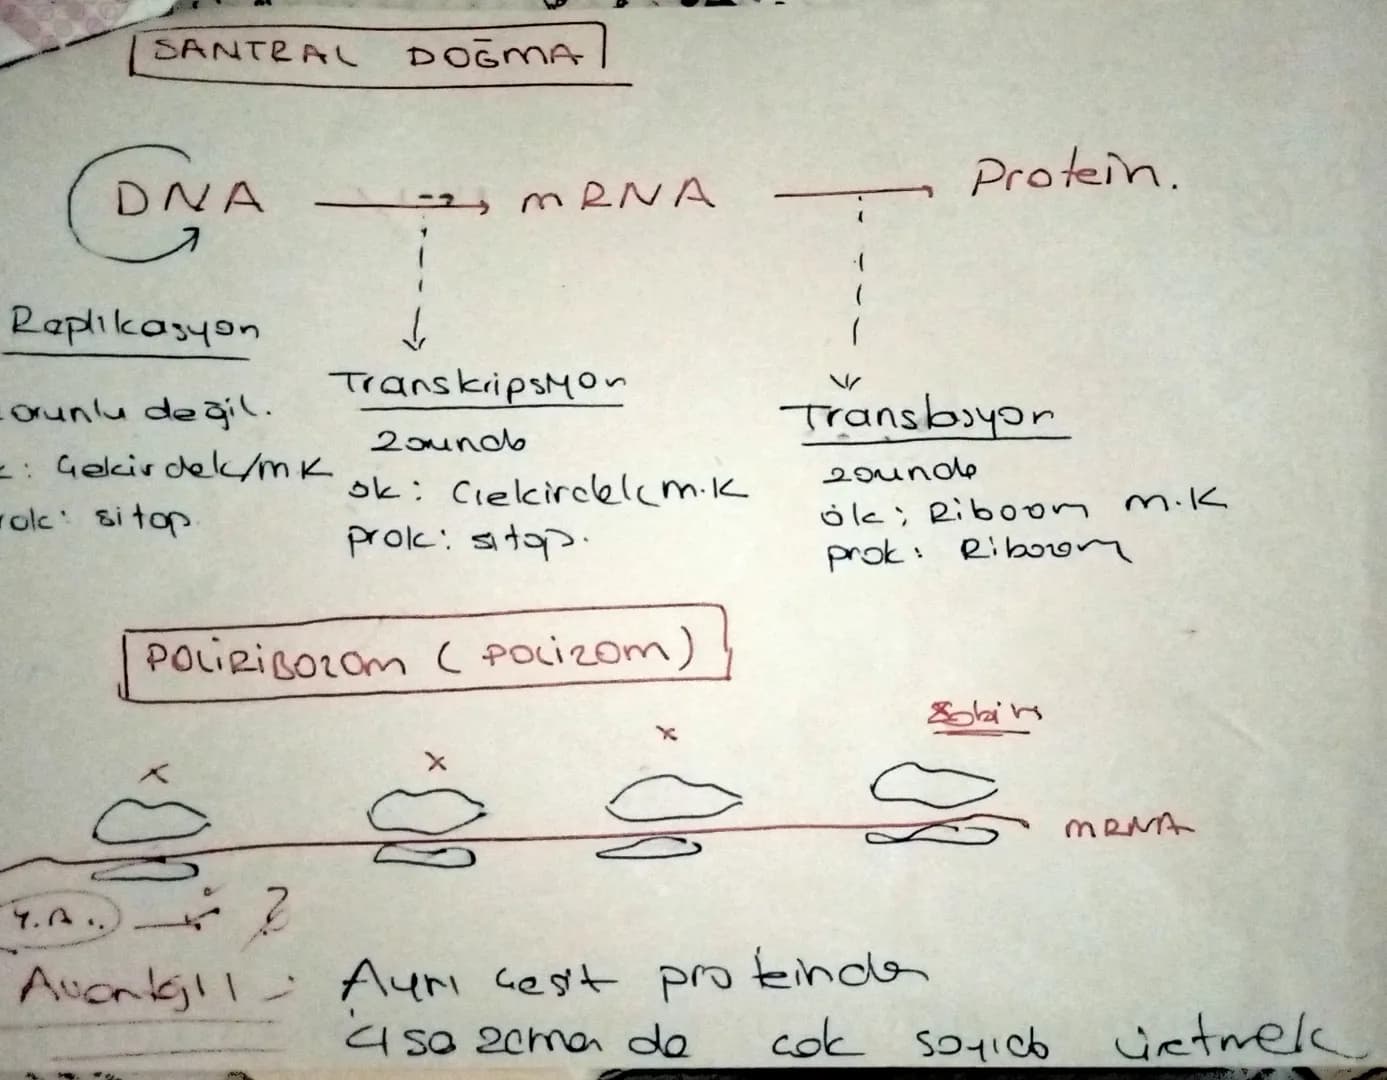 SANTRAL DOĞMA
DNA mRNA Protein.
Replikasyon
Transkripsiyon
Translasyon
orunlu değil.
zorunlu
zorunlu
: Çekirdek/m K
rok: sitop.
ök: Çekirdek m.K
prok: sitop.
ök: Ribozom m.K
prok: Ribozom
POLİRİBOZOM (POLİZOM)
x x x
mRNA
Y.A..
?
Avantajı : Aynı çeşit proteinden
kısa zamanda çok sayıda üretmek